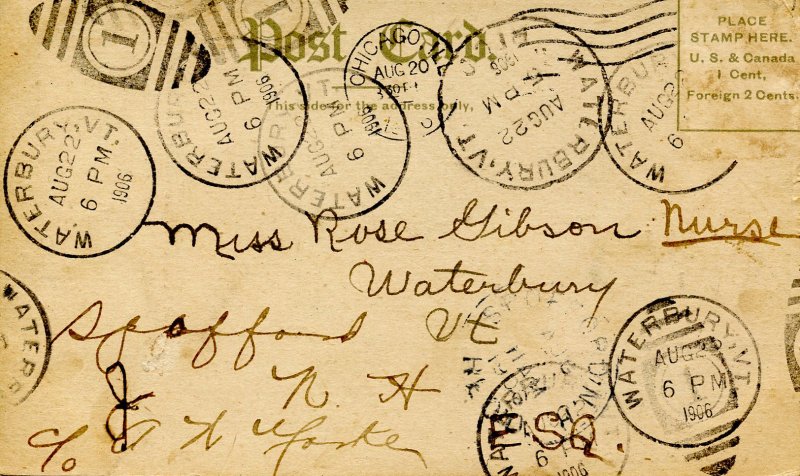 Post Card.
This side for the address only,
PLACE
STAMP HERE.
U. S. & Canada
1 Cent,
Foreign 2 Cents.
1
CHICAGO, ILL.
AUG 20
1906
WATERBURY, VT.
AUG 22
6 PM
1906
WATERBURY, VT.
AUG 22
6 PM
1906
WATERBURY, VT.
AUG 22
6 PM.
1906
WATERBURY, VT.
AUG 22
PM
1906
WATERBURY
AUG 2
6
Miss Rose Gibson Nurse
Waterbury
Vt
Spofford
N H
c/o
WATERBURY, VT.
AUG
6 PM
1906
WATERB
T SQ.
6 P
1906